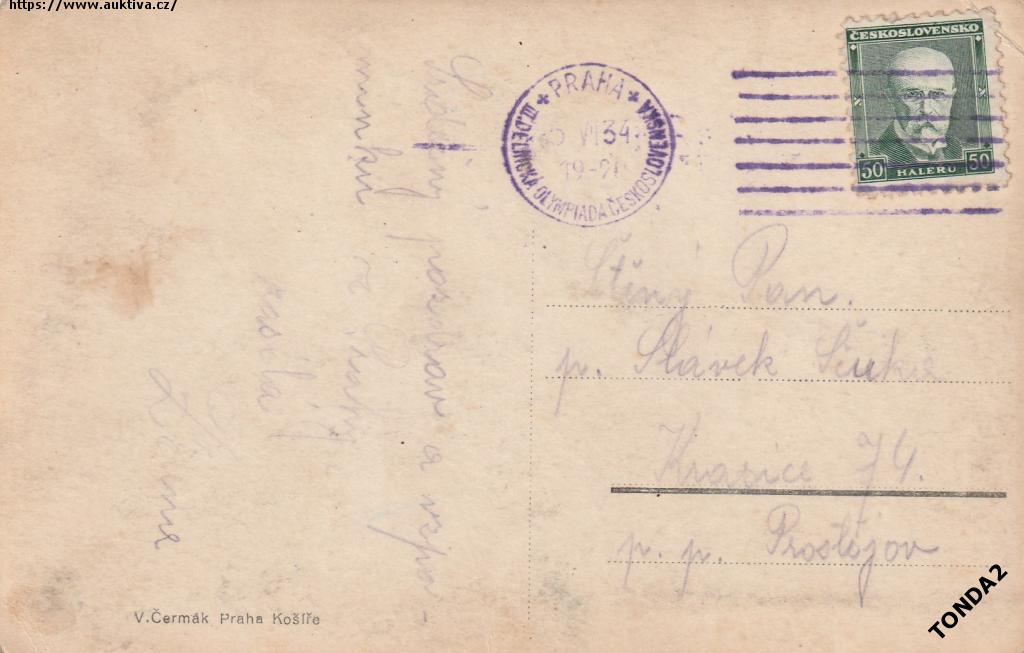 https://www.auktiva.cz/
ČESKOSLOVENSKO
50 HALÉRŮ 50
PRAHA
VI 34
19-21
III. DĚLNICKÁ OLYMPIADA ČESKOSLOVENSKA
Srdečný pozdrav a vzpo-
mínku z Prahy
zasílá
Ctěný Pan.
p. Slávek
Krasice 74.
p. p. Prostějov
V.Čermák Praha Košíře
TONDA2